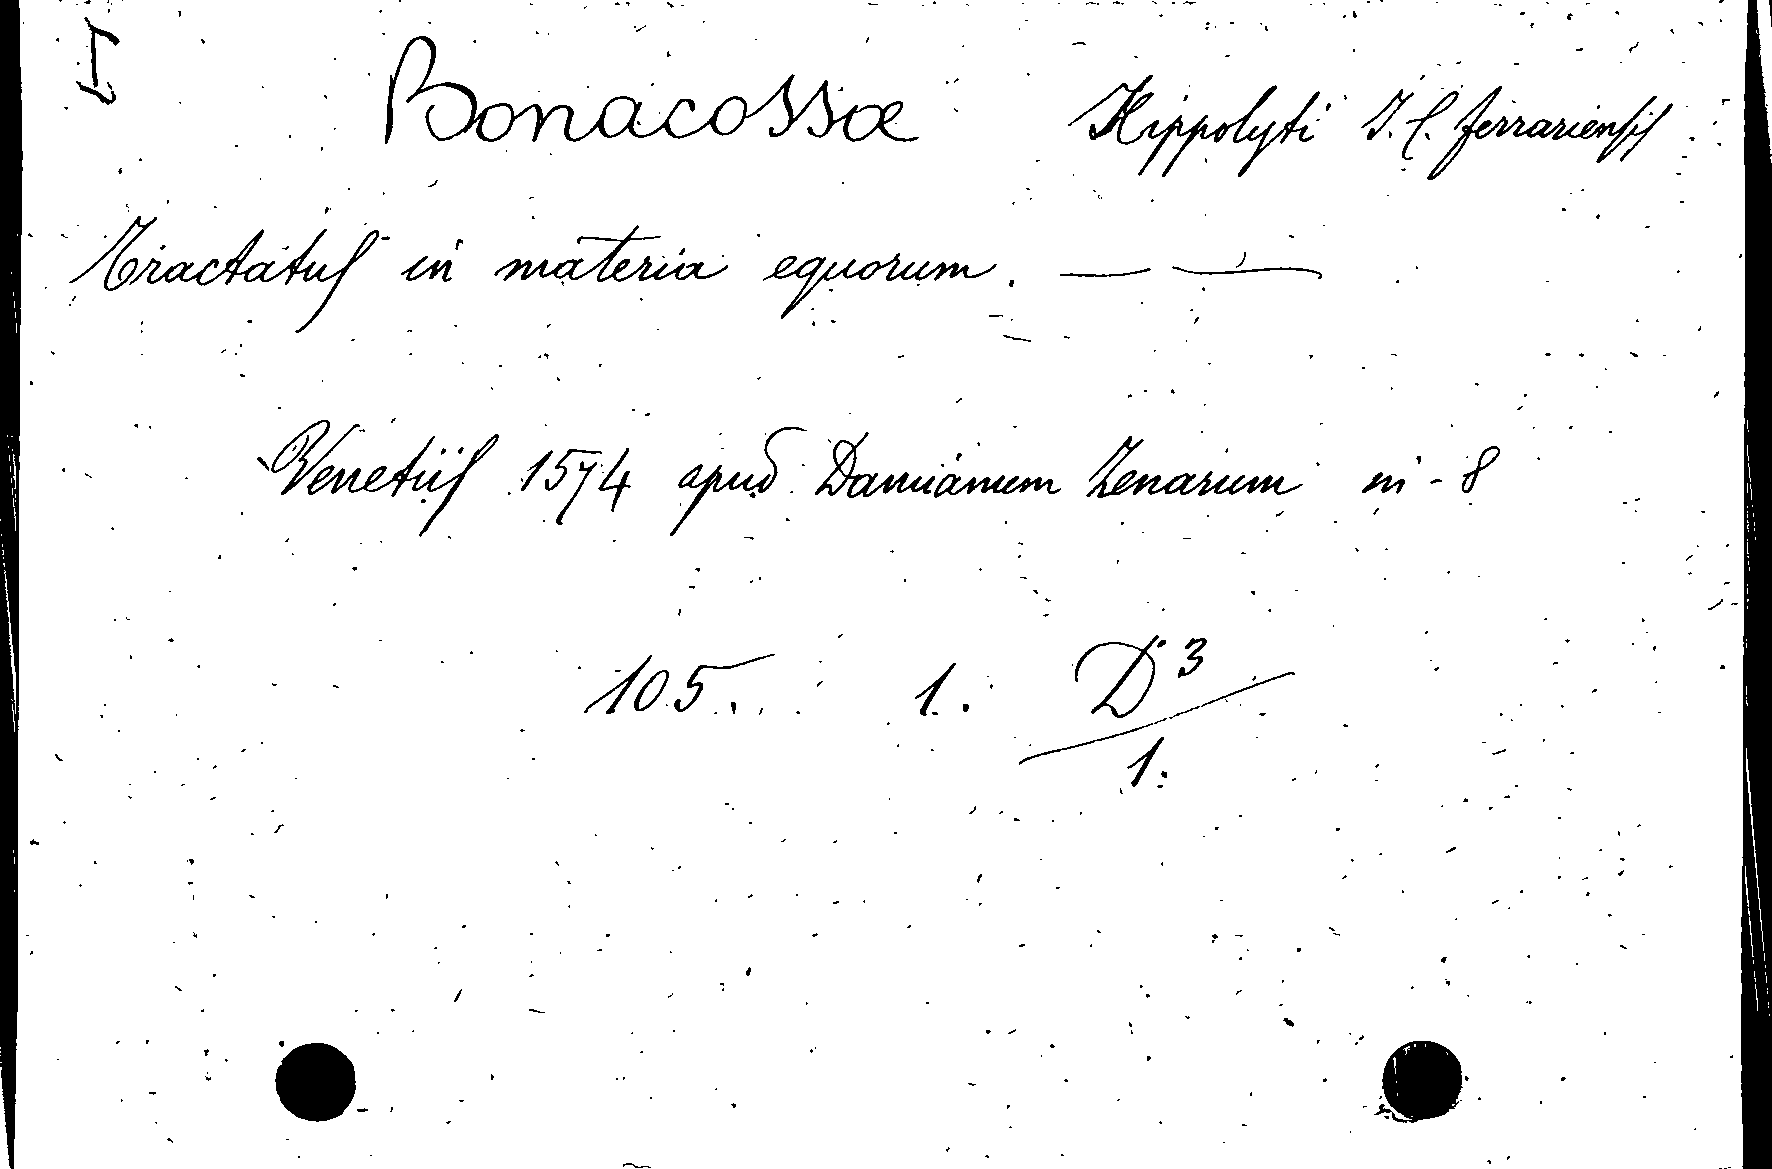 Bonacossæ Hippolyti J. C. ferrariensis
Tractatus in materia equorum. — —
Venetiis 1574 apud Damianum Zenarium in-8
105. 1. D³
1.